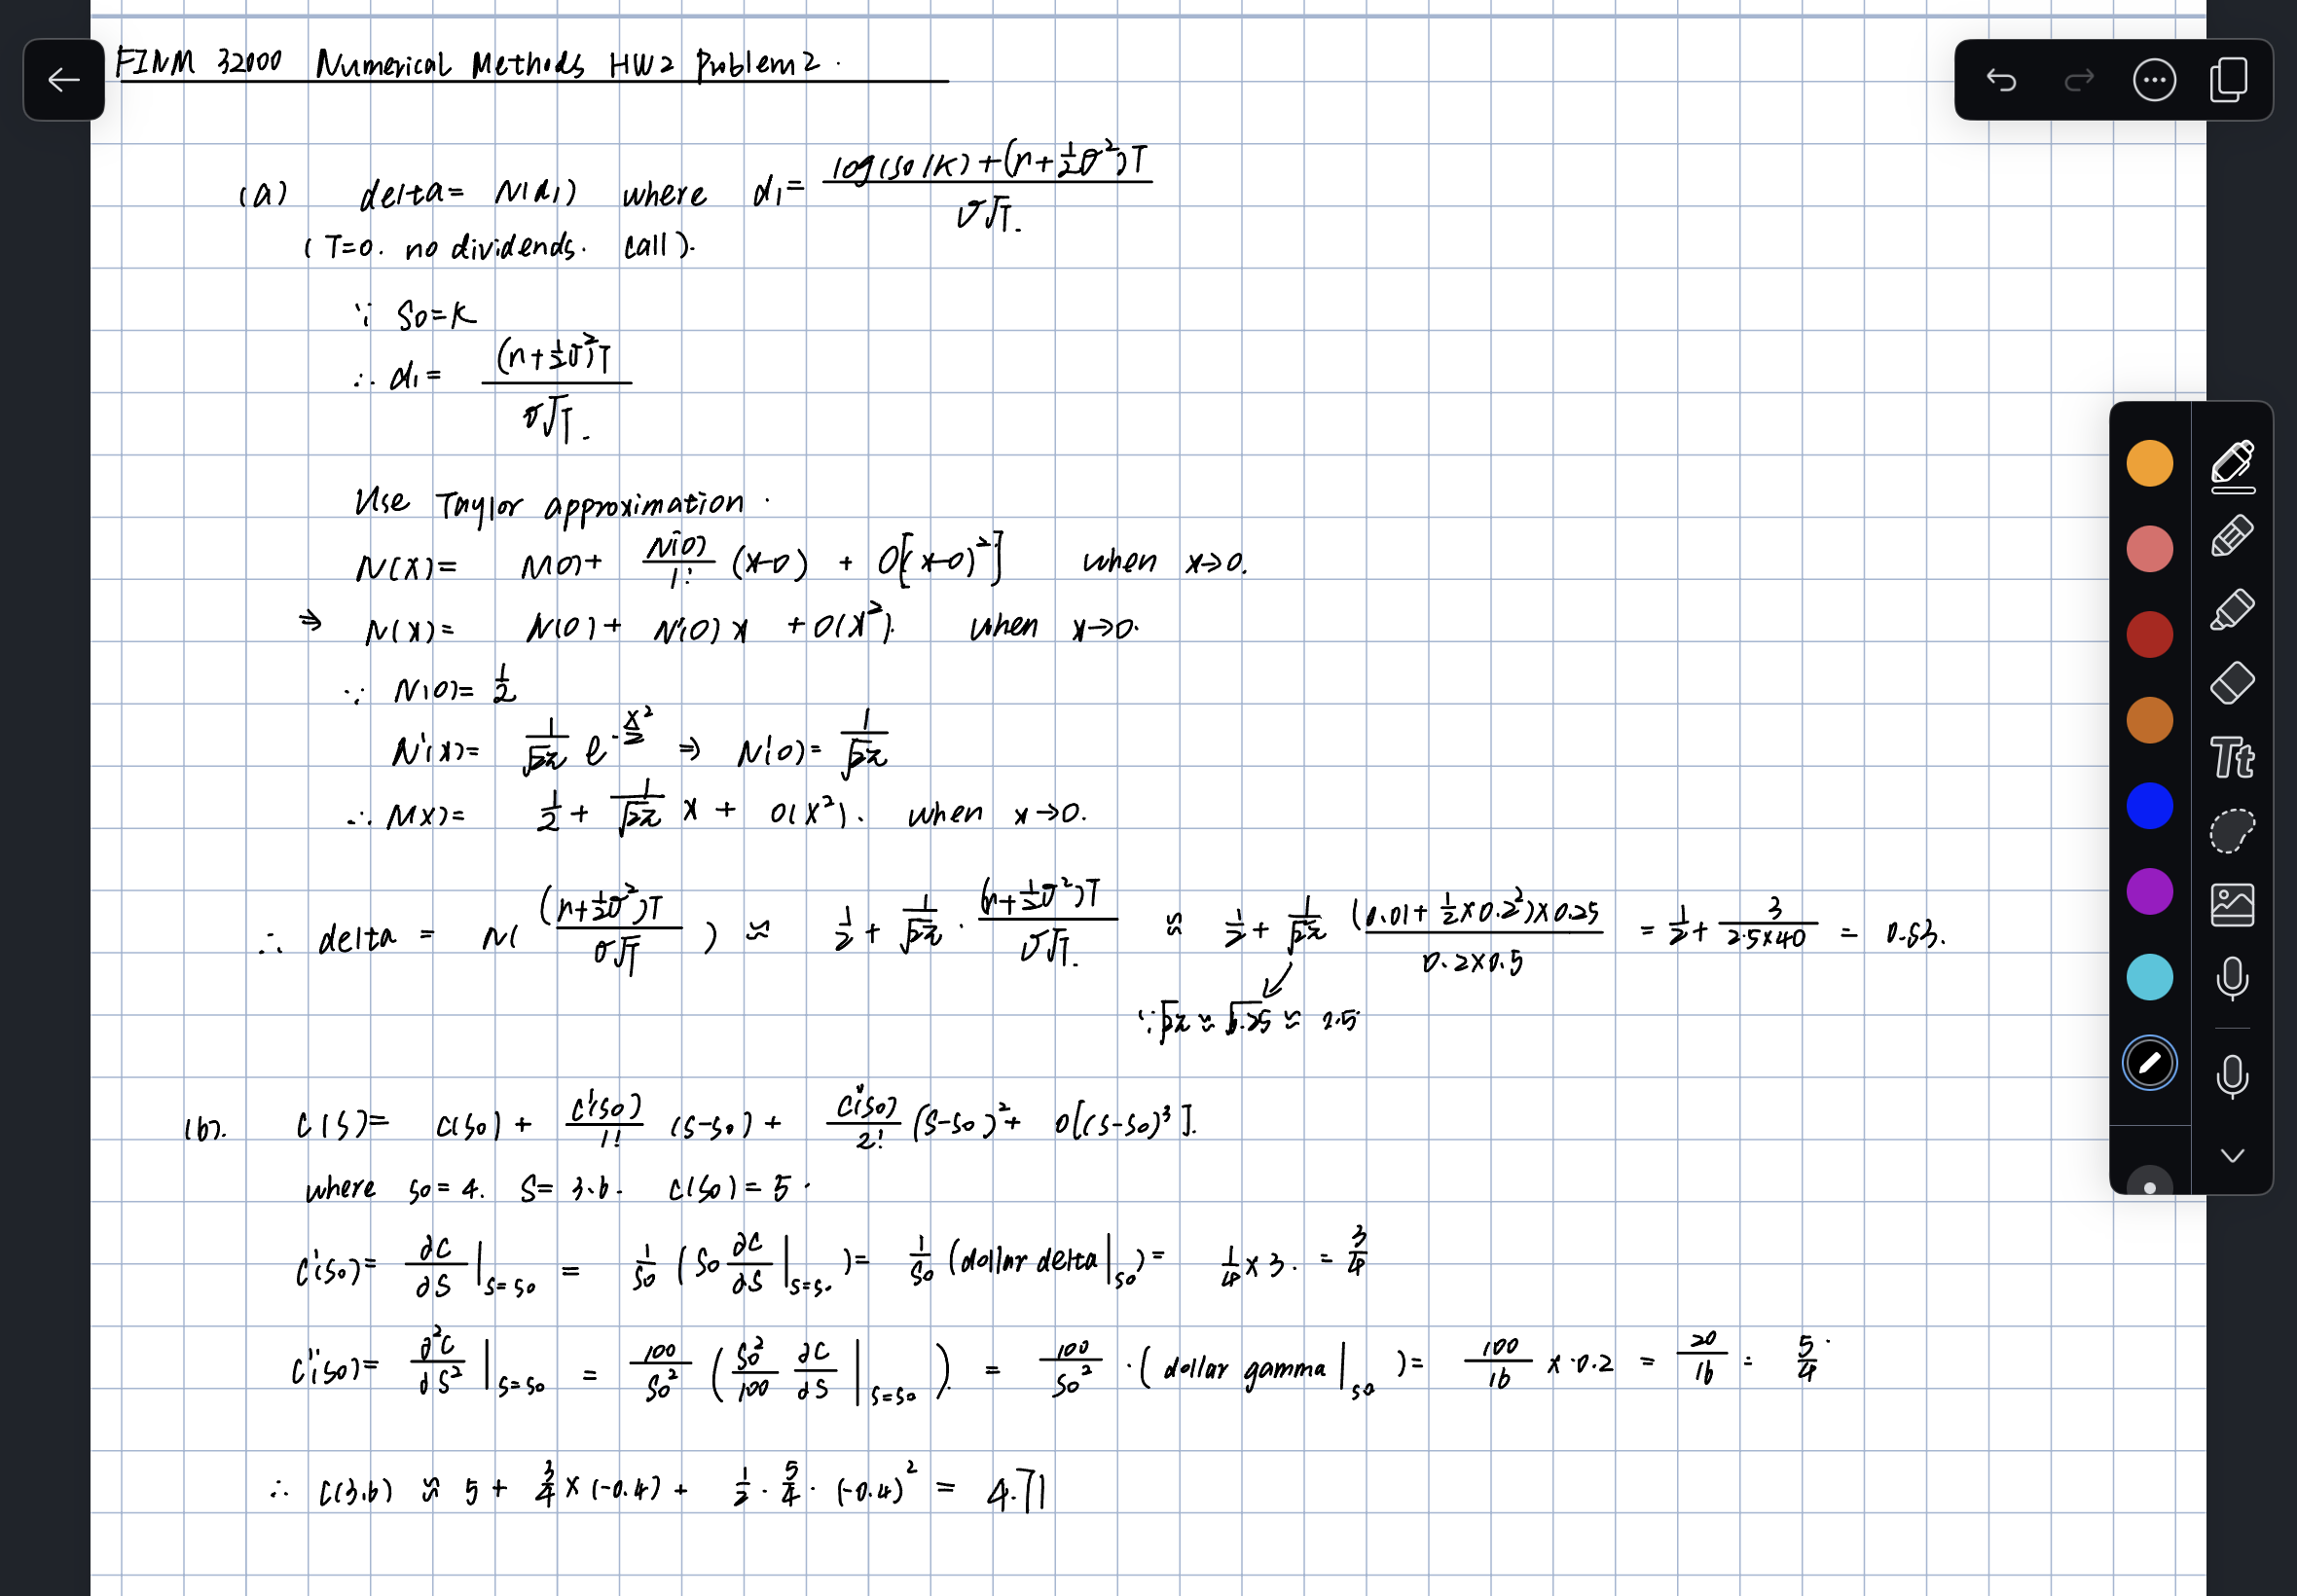 FINM 32000 Numerical Methods HW2 Problem2.
(a) delta = N(d₁) where d₁ = (log(S₀/K) + (r + ½σ²)T) / (σ√T).
(T=0. no dividends. call).
∵ S₀ = K
∴ d₁ = (r + ½σ²)T / (σ√T).
Use Taylor approximation.
N(x) = N(0) + N'(0)/1! (x-0) + O[(x-0)²] when x→0.
⇒ N(x) = N(0) + N'(0) x + O(x²). when x→0.
∵ N(0) = 1/2
N'(x) = 1/√2π e^(-x²/2) ⇒ N'(0) = 1/√2π
∴ N(x) = 1/2 + 1/√2π x + O(x²). when x→0.
∴ delta = N( (r + ½σ²)T / (σ√T) ) ≈ 1/2 + 1/√2π · (r + ½σ²)T / (σ√T). ≈ 1/2 + 1/√2π (0.01 + ½×0.2²)×0.25 / (0.2×0.5) = 1/2 + 3/(2.5×40) = 0.53.
∵ √2π ≈ √6.25 ≈ 2.5
(b). C(S) = C(S₀) + C'(S₀)/1! (S-S₀) + C''(S₀)/2! (S-S₀)² + O[(S-S₀)³].
where S₀ = 4. S = 3.6. C(S₀) = 5.
C'(S₀) = ∂C/∂S |S=S₀ = 1/S₀ (S₀ ∂C/∂S |S=S₀) = 1/S₀ (dollar delta |S₀) = 1/4 × 3. = 3/4
C''(S₀) = ∂²C/∂S² |S=S₀ = 100/S₀² (S₀²/100 ∂C/∂S |S=S₀) = 100/S₀² · (dollar gamma |S₀) = 100/16 × 0.2 = 20/16 = 5/4.
∴ C(3.6) ≈ 5 + 3/4 × (-0.4) + 1/2 · 5/4 · (-0.4)² = 4.71
Tt